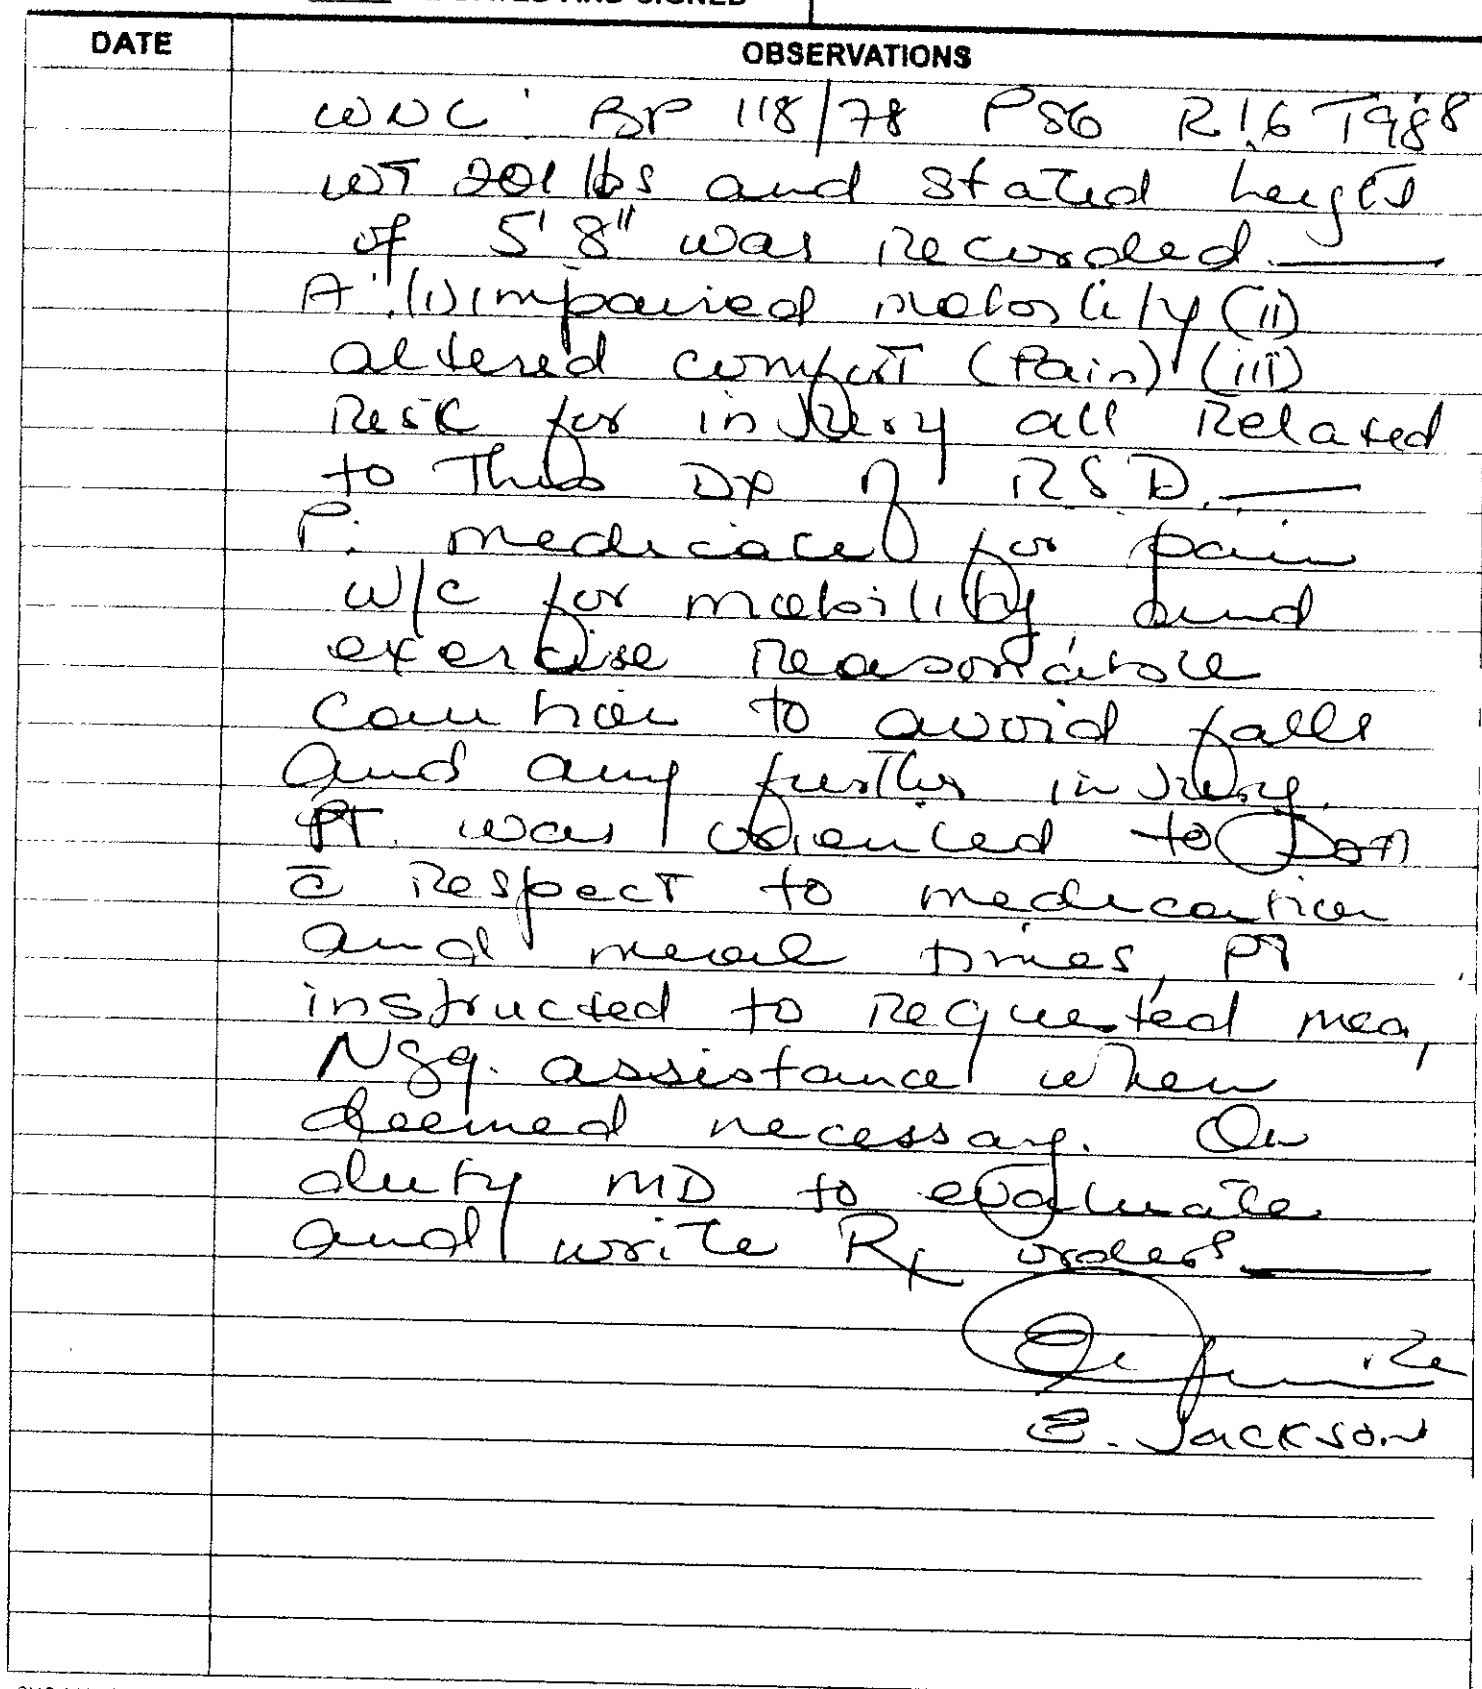 DATES AND SIGNED
DATE OBSERVATIONS
WNL: BP 118/78 P86 R16 T98.8
WT 201 lbs and stated height
of 5'8" was recorded.
A: (i) impaired mobility (ii)
altered comfort (Pain) (iii)
Risk for injury all Related
to this Dx of RSD.
P: medicated for pain
w/c for mobility and
exercise reasonable
caution to avoid falls
and any further injury.
PT. was oriented to
c̄ Respect to medication
and meal times, PT
instructed to Requested med,
Nsg. assistance when
deemed necessary. On
duty MD to evaluate
and write Rx orders
E. Jackson